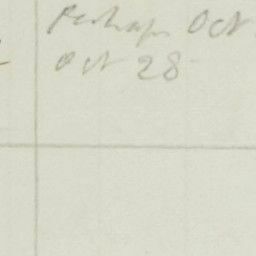 Perhaps Oct
Oct 28